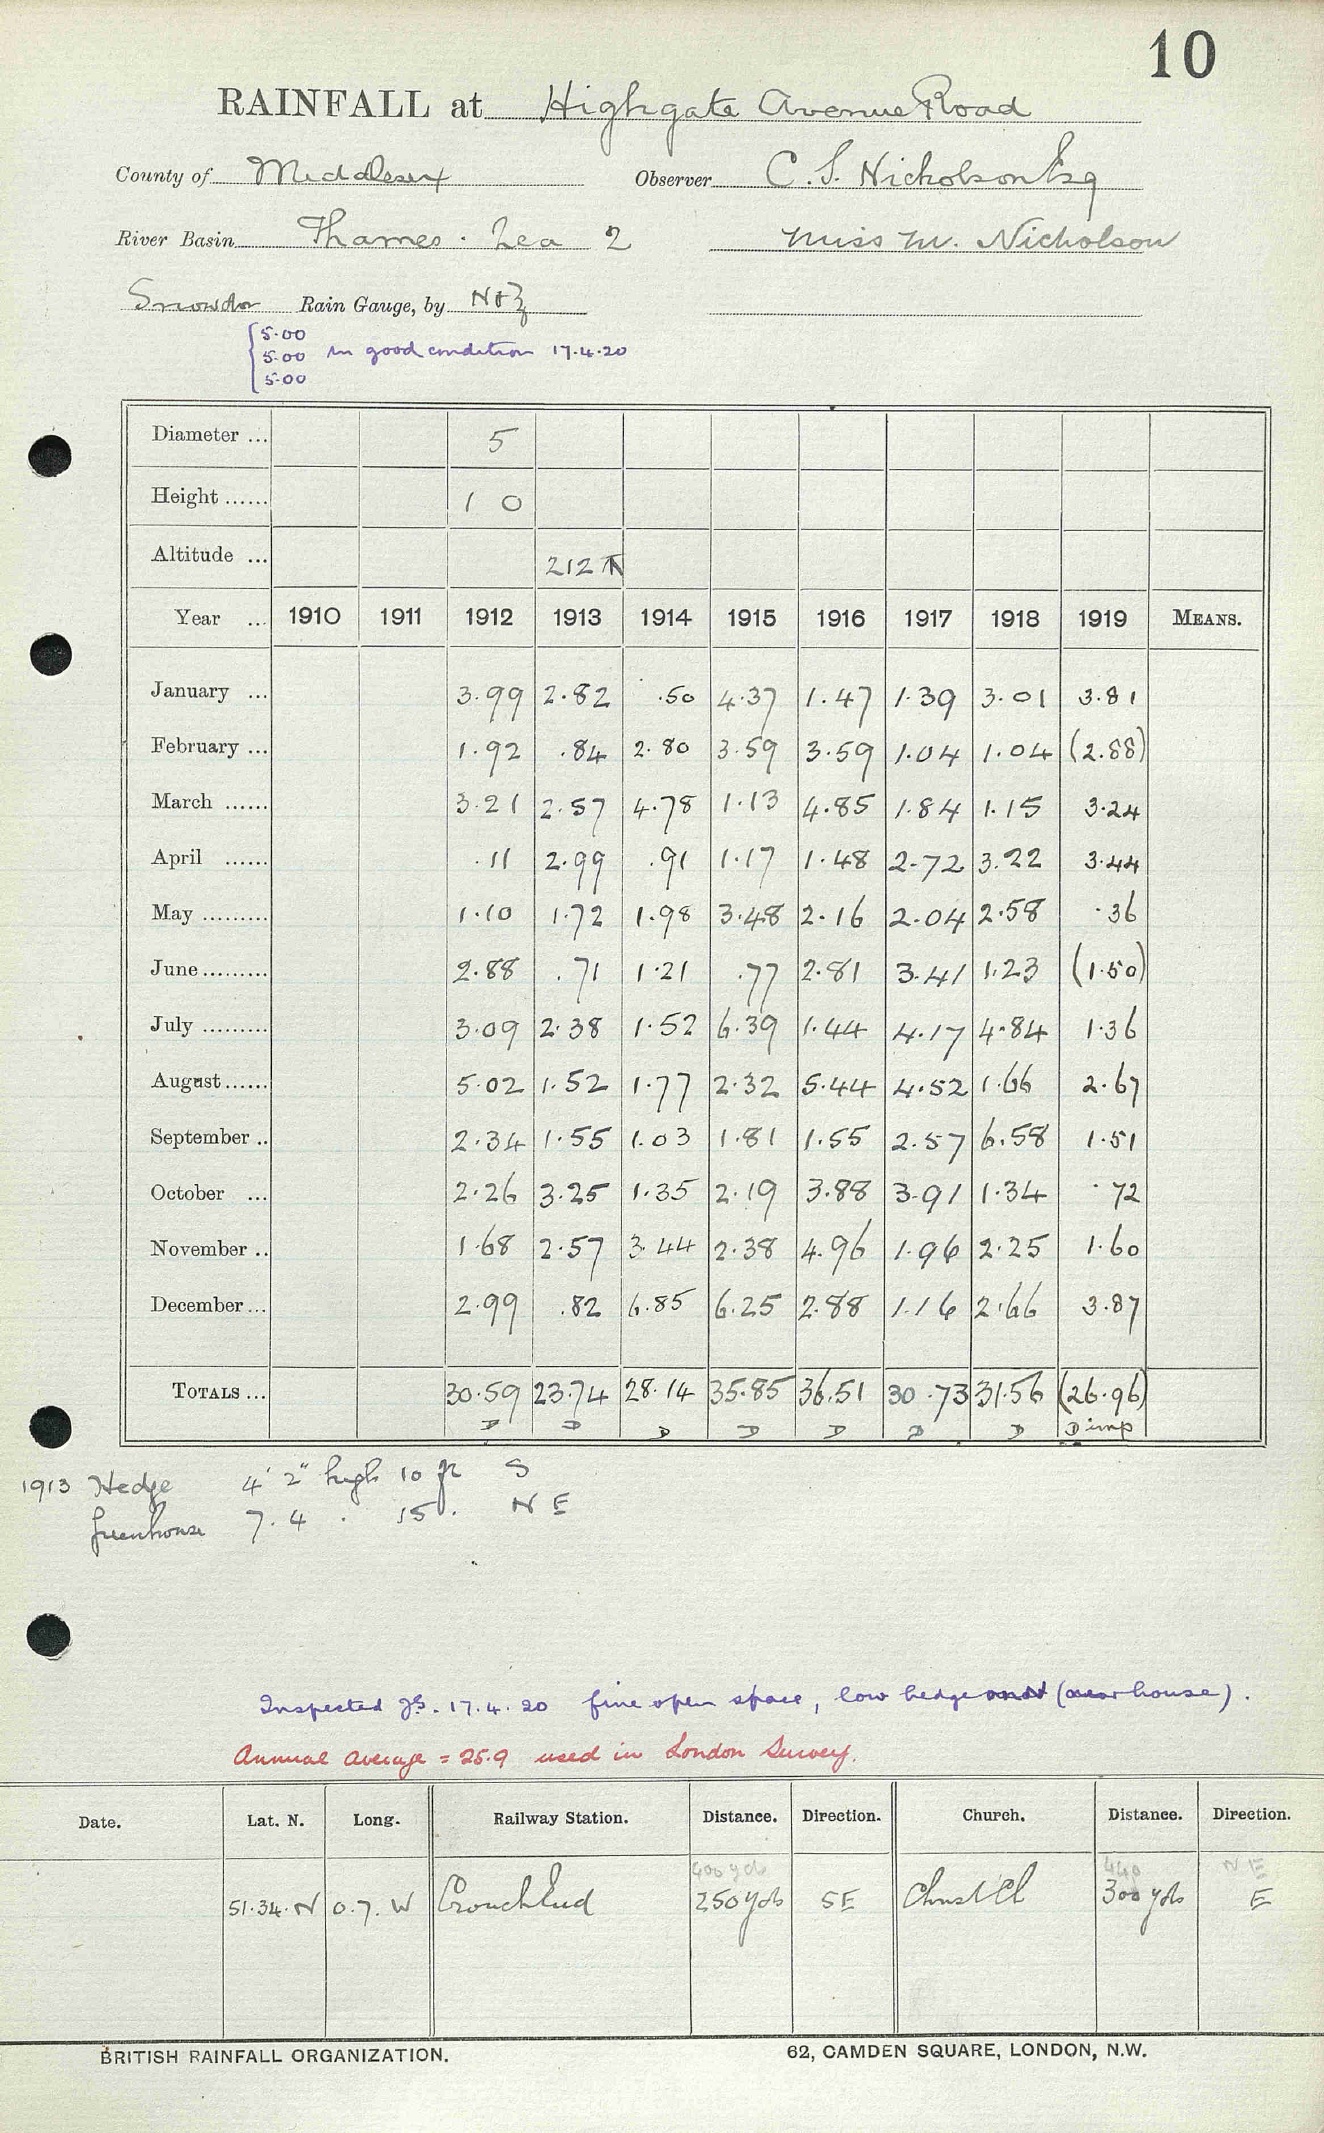 10
RAINFALL at Highgate Avenue Road
County of Middlesex Observer C. S. Nicholson Esq
River Basin Thames. Lea 2 Miss M. Nicholson
Snowdon Rain Gauge, by N & Z
5.00
5.00 in good condition 17.4.20
5.00
Diameter ... 5
Height ...... 1 0
Altitude ... 212
Year ... 1910 1911 1912 1913 1914 1915 1916 1917 1918 1919 MEANS.
January ... 3.99 2.82 .50 4.37 1.47 1.39 3.01 3.81
February ... 1.92 .84 2.80 3.59 3.59 1.04 1.04 (2.88)
March ...... 3.21 2.57 4.78 1.13 4.85 1.84 1.15 3.24
April ...... .11 2.99 .91 1.17 1.48 2.72 3.22 3.44
May ......... 1.10 1.72 1.98 3.48 2.16 2.04 2.58 .36
June ......... 2.88 .71 1.21 .77 2.81 3.41 1.23 (1.50)
July ......... 3.09 2.38 1.52 6.39 1.44 4.17 4.84 1.36
August ...... 5.02 1.52 1.77 2.32 5.44 4.52 1.66 2.67
September .. 2.34 1.55 1.03 1.81 1.55 2.57 6.58 1.51
October ... 2.26 3.25 1.35 2.19 3.88 3.91 1.34 .72
November .. 1.68 2.57 3.44 2.38 4.96 1.96 2.25 1.60
December ... 2.99 .82 6.85 6.25 2.88 1.16 2.66 3.87
TOTALS ... 30.59 23.74 28.14 35.85 36.51 30.73 31.56 (26.96)
D D D D D D D D imp
1913 Hedge 4' 2" high 10 ft S
Greenhouse 7.4 . 15 . N E
Inspected 17.4.20 fine open space, low hedge (near house).
Annual average = 25.9 used in London Survey.
Date. Lat. N. Long. Railway Station. Distance. Direction. Church. Distance. Direction.
400 yds 440 N E
51.34.N 0.7.W Crouch End 250 yds SE Christ Ch 300 yds E
BRITISH RAINFALL ORGANIZATION. 62, CAMDEN SQUARE, LONDON, N.W.